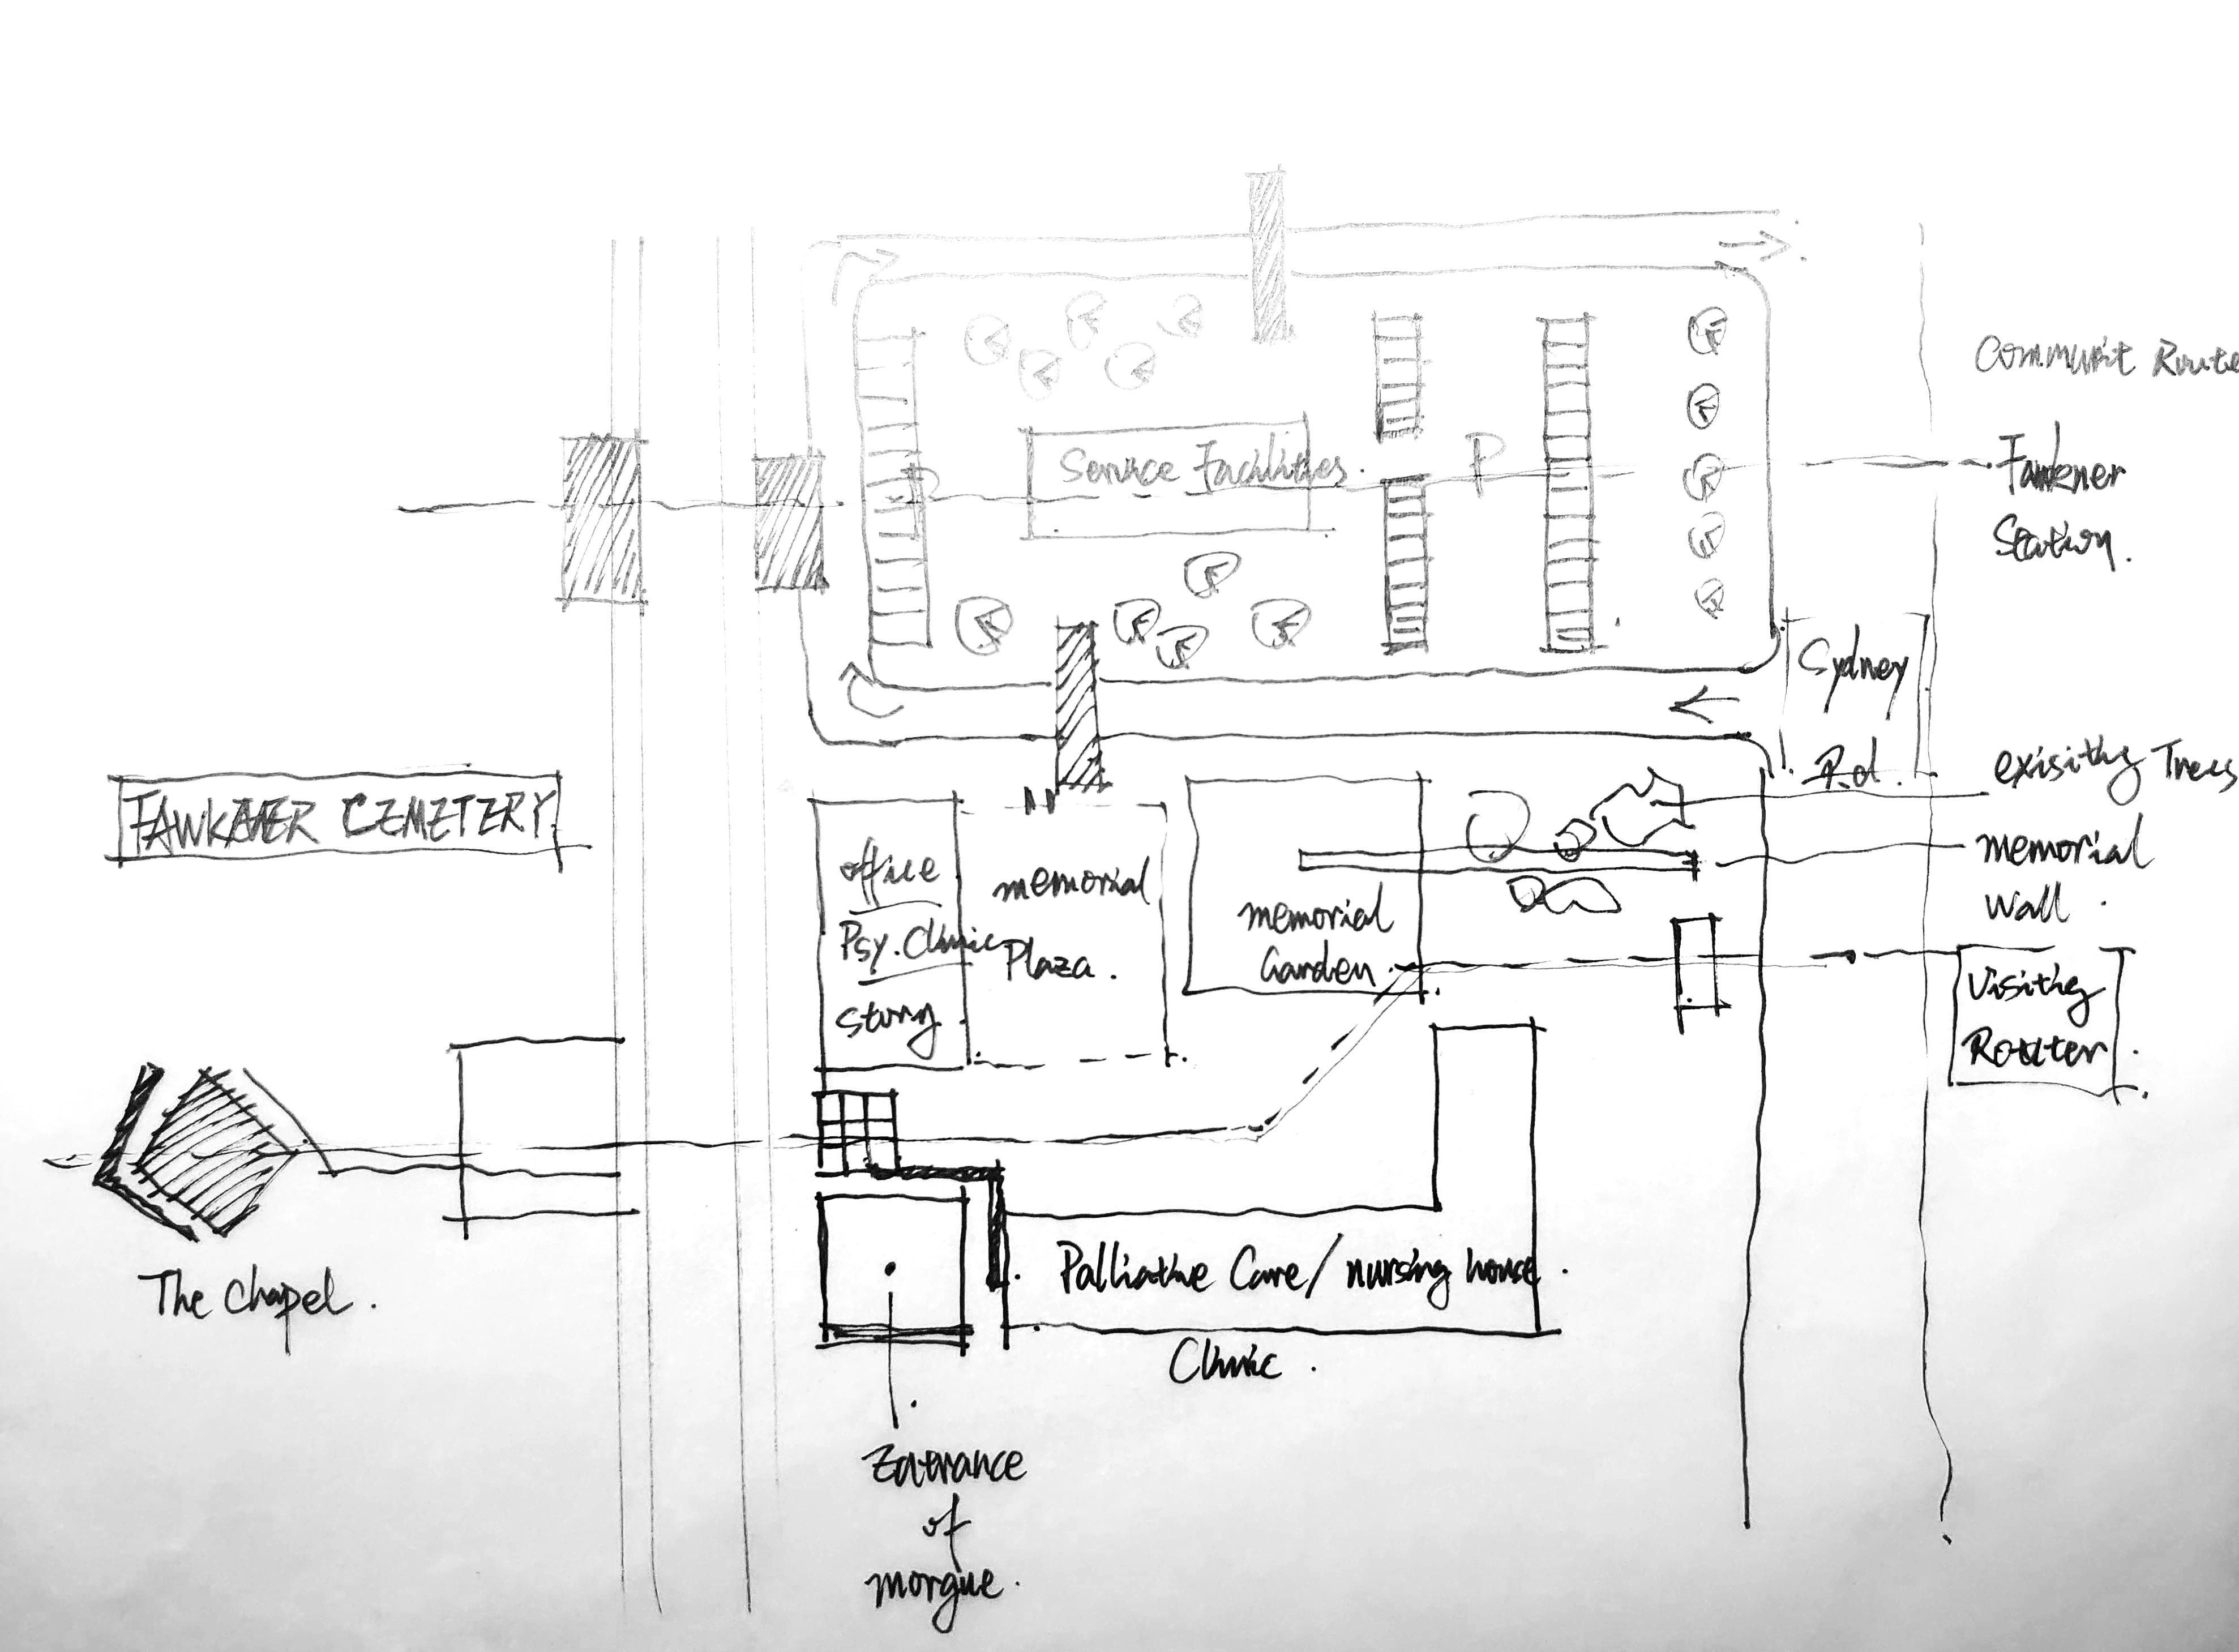 Communit Route
Service Facilities.
P
P
Fawkner
Station.
Sydney
Rd.
exisithg Trees
FAWKNER CEMETERY
memorial
Wall.
office
Psy. Clinic
story
memorial
Plaza.
memorial
Garden.
Visithg
Router.
Palliative Care/ nursing house.
Clinic.
The Chapel.
Entrance
of
morgue.